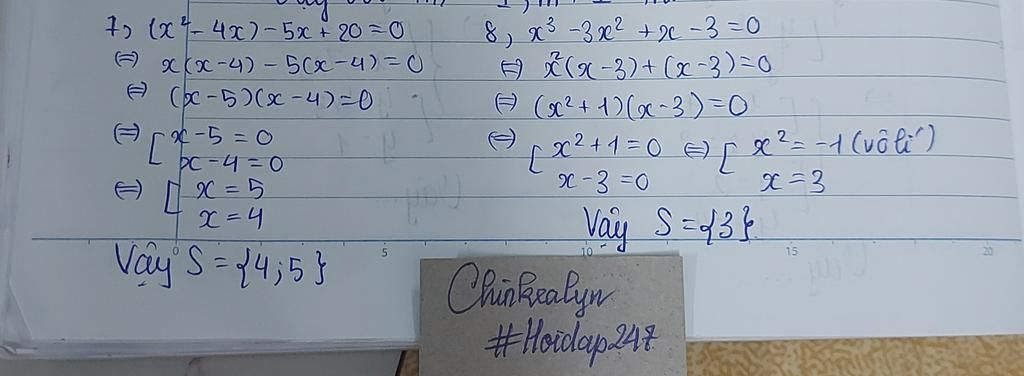 7, (x² - 4x) - 5x + 20 = 0
⇔ x(x - 4) - 5(x - 4) = 0
⇔ (x - 5)(x - 4) = 0
⇔ [ x - 5 = 0
x - 4 = 0
⇔ [ x = 5
x = 4
Vậy S = {4; 5}
8, x³ - 3x² + x - 3 = 0
⇔ x²(x - 3) + (x - 3) = 0
⇔ (x² + 1)(x - 3) = 0
⇔ [ x² + 1 = 0 ⇔ [ x² = -1 (vô lí)
x - 3 = 0 x = 3
Vậy S = {3}
0 5 10 15 20
Chinkealyn
#Hoidap247